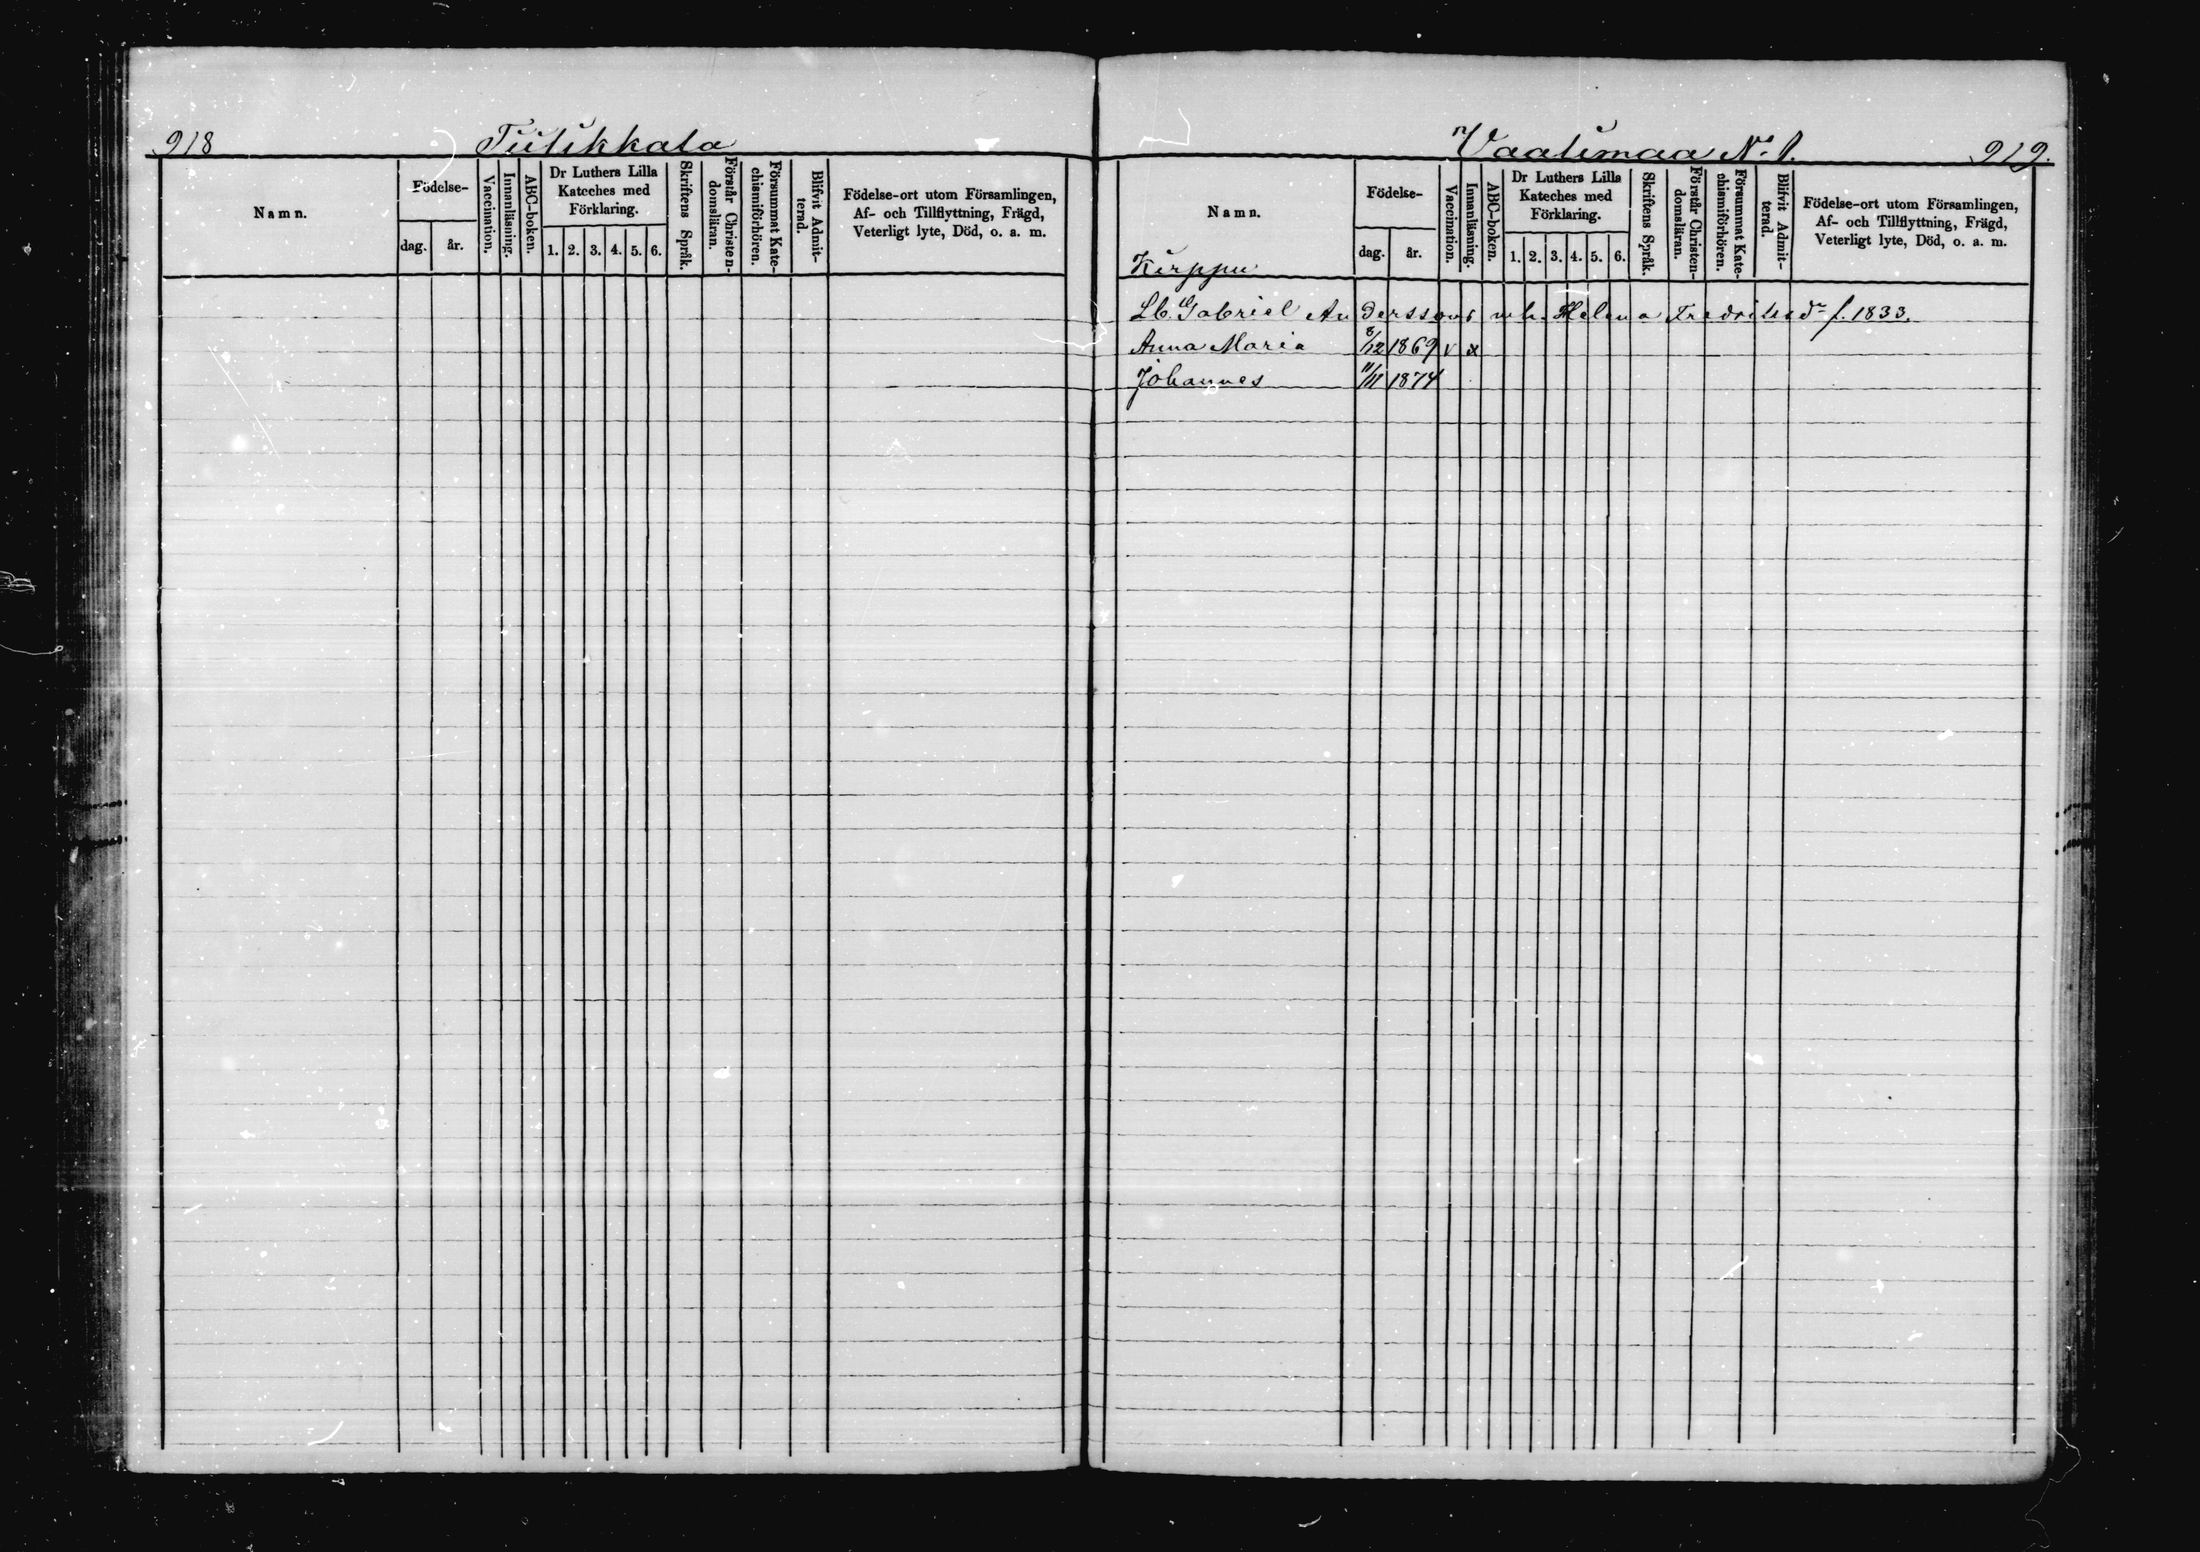 918 Tulikkala
Namn.
Födelse-
dag. år.
Vaccination.
Innanläsning.
ABC-boken.
Dr Luthers Lilla
Kateches med
Förklaring.
1. 2. 3. 4. 5. 6.
Skriftens Språk.
Förstår Christen-
domsläran.
Försummat Kate-
chismiförhören.
Blifvit Admit-
terad.
Födelse-ort utom Församlingen,
Af- och Tillflyttning, Frägd,
Veterligt lyte, Död, o. a. m.
Vaalimaa No 1. 919.
Namn.
Födelse-
dag. år.
Vaccination.
Innanläsning.
ABC-boken.
Dr Luthers Lilla
Kateches med
Förklaring.
1. 2. 3. 4. 5. 6.
Skriftens Språk.
Förstår Christen-
domsläran.
Försummat Kate-
chismiförhören.
Blifvit Admit-
terad.
Födelse-ort utom Församlingen,
Af- och Tillflyttning, Frägd,
Veterligt lyte, Död, o. a. m.
Kirppu
Lb. Gabriel Anderssons Helena f. 1833.
Anna Maria 8/12 1869 v x
Johannes 11/11 1874